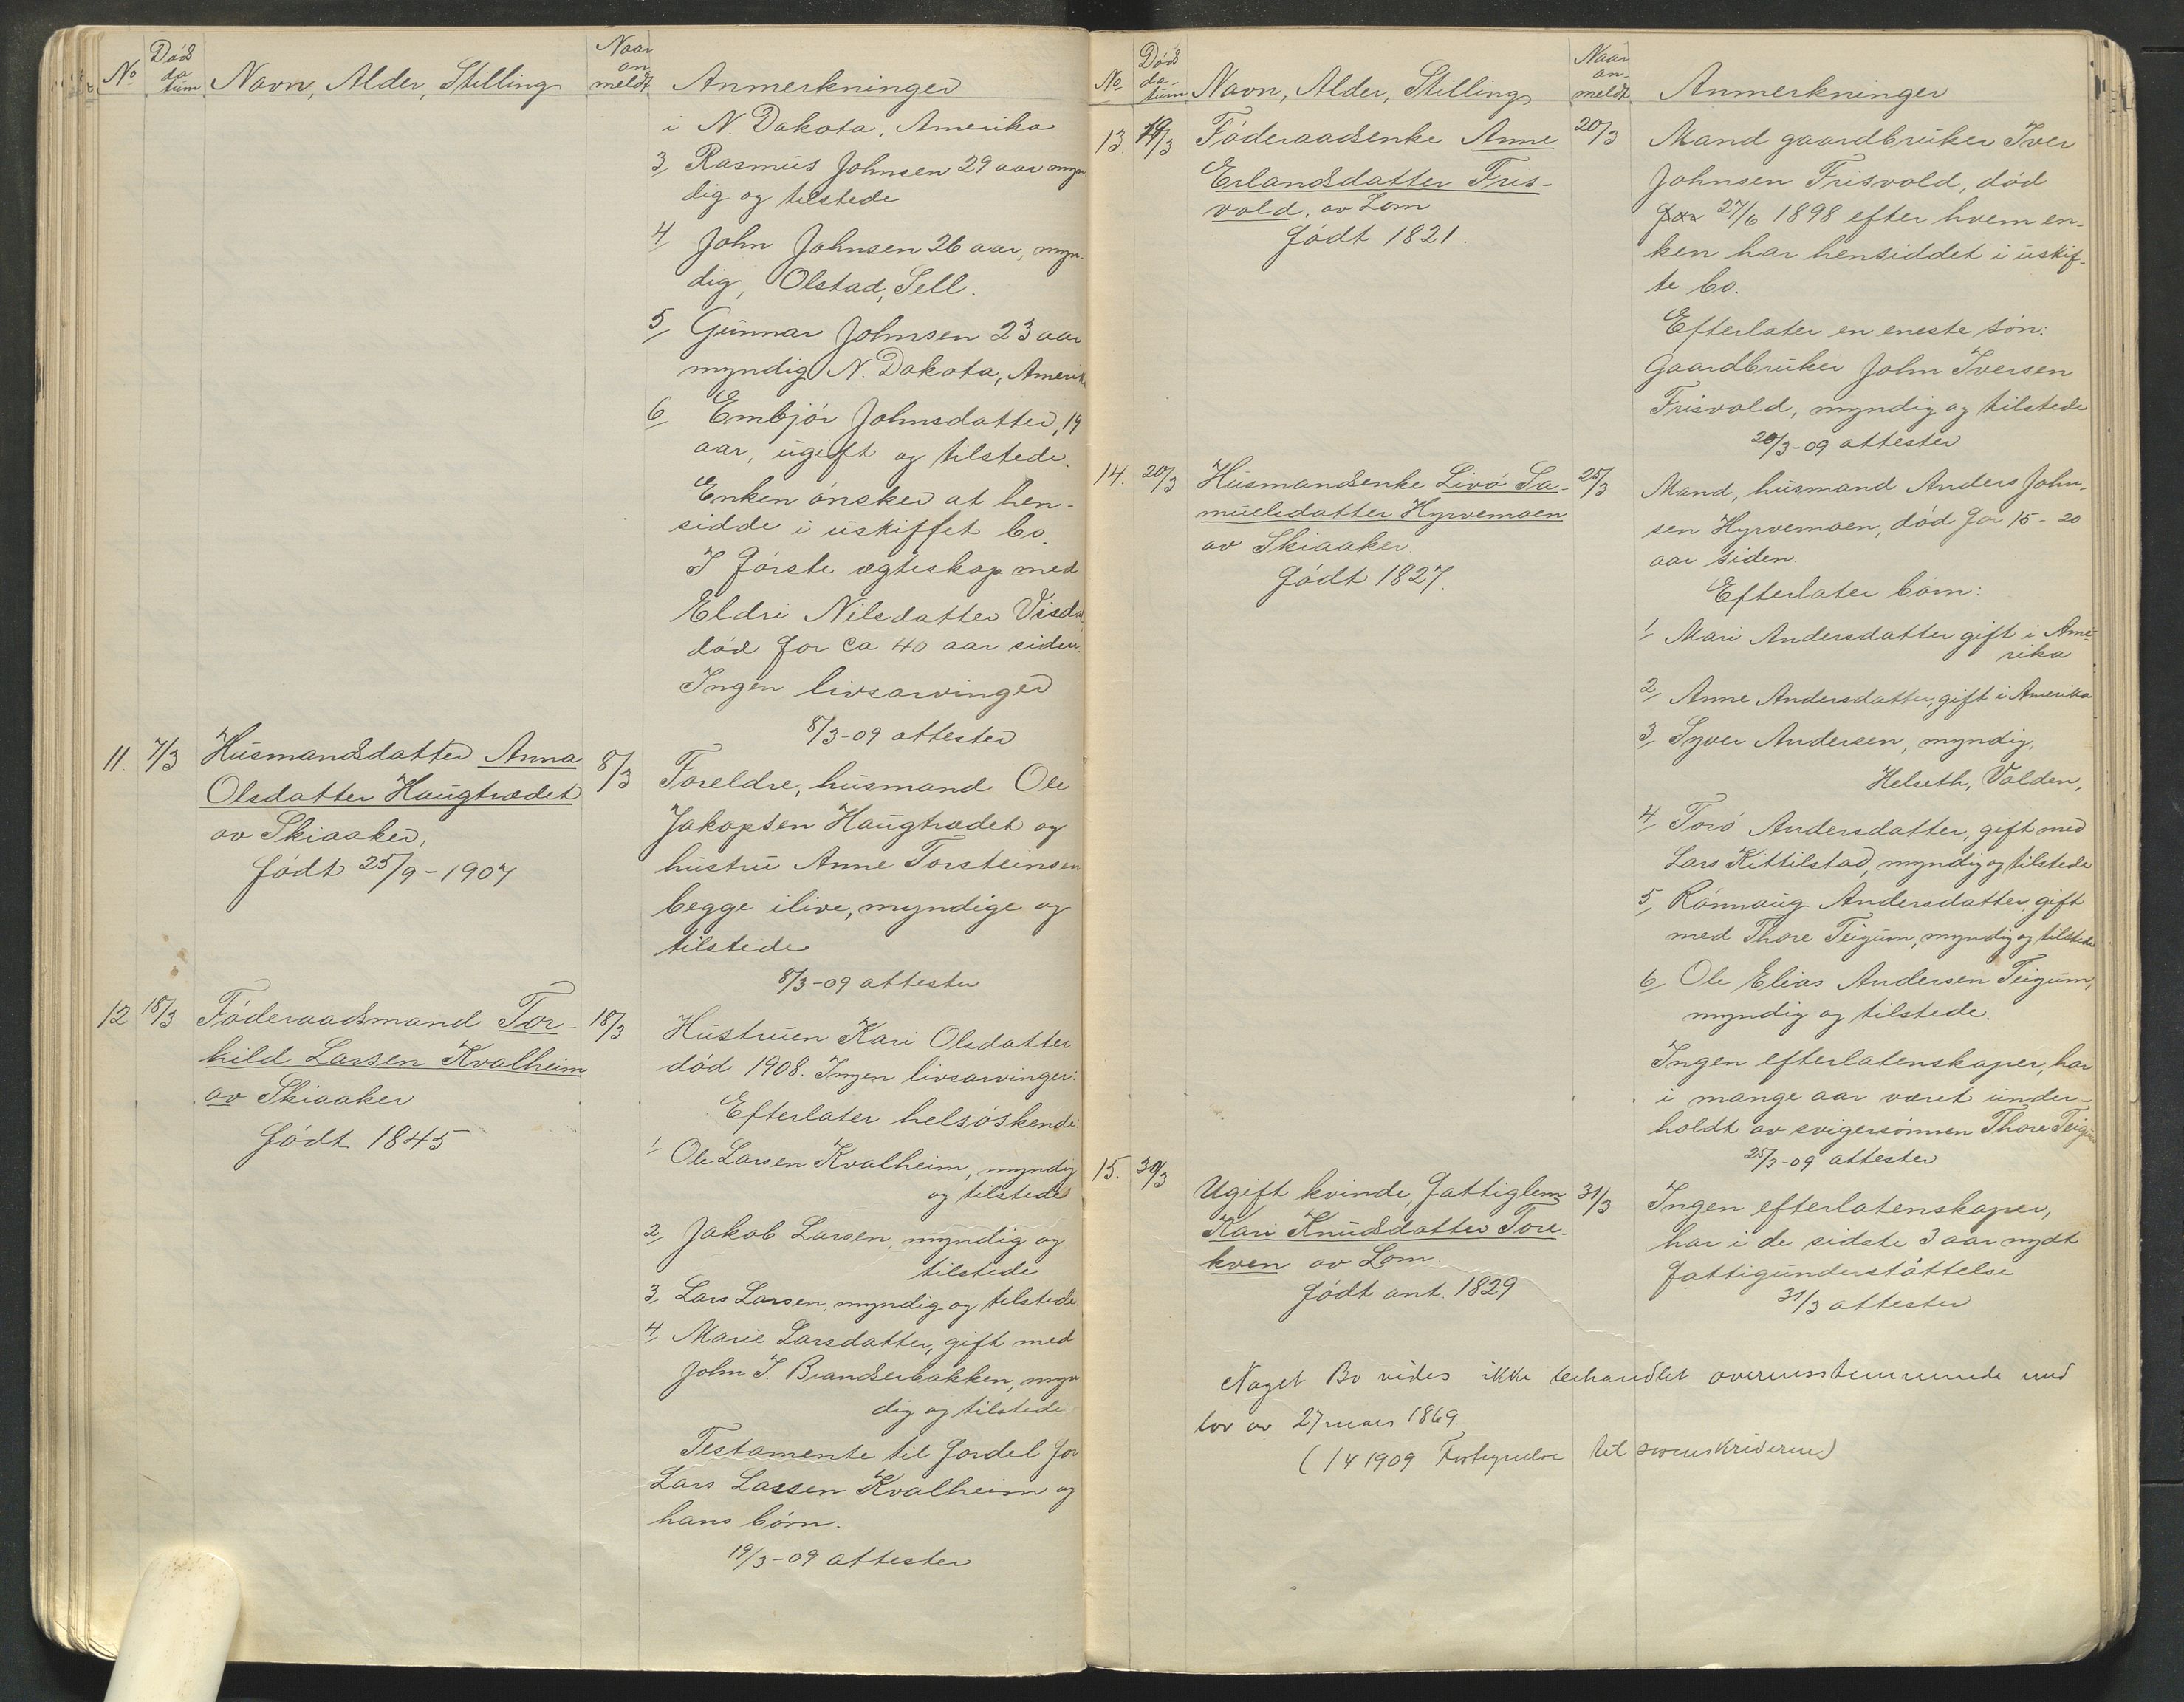 No Død da tum Navn, Alder, Stilling Naar an meldt Anmerkninger
i N. Dakota, Amerika
3, Rasmus Johnsen 29 aar myn
dig og tilstede
4, John Johnsen 26 aar, myn-
dig, Olstad, Sell.
5, Gunnar Johnsen 23 aar
myndig N. Dakota, Amerik
6, Embjør Johnsdatter, 19
aar, ugift og tilstede.
Enken ønsker at hen-
sidde i uskiftet bo.
I første ægteskap med
Eldri Nilsdatter Visda
død for ca 40 aar siden.
Ingen livsarvinger
8/3-09 attester
11. 7/3 Husmandsdatter Anna
Olsdatter Haugtrædet
av Skiaaker,
født 25/9-1907
8/3 Foreldre, husmand Ole
Jakopsen Haugtrædet og
hustru Anne Torsteinsen
begge ilive, myndige og
tilstede
8/3-09 attester
12 18/3 Føderaadsmand Tor-
hild Larsen Kvalheim
av Skiaaker
født 1845
18/3 Hustruen Kari Olsdatter
død 1908. Ingen livsarvinger:
Efterlater helsøskende:
1, Ole Larsen Kvalheim, myndig
og tilstede
2, Jakob Larsen, myndig og
tilstede
3, Lars Larsen, myndig og tilstede
4, Marie Larsdatter, gift med
John I. Brandserbakken, myn-
dig og tilstede
Testamente til fordel for
Lars Larsen Kvalheim og
hans børn.
19/3-09 attester
No Død da- tum Navn, Alder, Stilling Naar an- meldt Anmerkninger
13. 19/3 Føderaadsenke Anne
Erlandsdatter Fris-
vold, av Lom
født 1821.
20/3 Mand gaardbruker Iver
Johnsen Frisvold, død
27/6 1898 efter hvem en-
ken har hensiddet i uskif-
te bo.
Efterlater en eneste søn:
Gaardbruker John Iversen
Frisvold, myndig og tilstede
20/3-09 attester
14. 20/3 Husmandsenke Livø Sa-
muelsdatter Hyrvemoen
av Skiaaker.
født 1827.
25/3 Mand, husmand Anders John-
sen Hyrvemoen, død for 15-20
aar siden.
Efterlater børn:
1, Mari Andersdatter gift i Ame-
rika
2, Anne Andersdatter, gift i Amerika
3, Syver Andersen, myndig,
Helseth, Valden,
4, Torø Andersdatter, gift med
Lars Kittilstad, myndig og tilstede
5, Rønnaug Andersdatter, gift
med Thore Teigum, myndig og tilstede
6, Ole Elias Andersen Teigum,
myndig og tilstede.
Ingen efterlatenskaper, har
i mange aar været under-
holdt av svigersønnen Thore Teigum
25/3-09 attester
15. 30/3 Ugift kvinde, fattiglem
Kari Knudsdatter Tore-
kven av Lom.
født ant. 1829
31/3 Ingen efterlatenskaper,
har i de sidste 3 aar nydt
fattigunderstøttelse
31/3 attester
Noget Bo vides ikke behandlet overensstemmende med
lov av 27 mars 1869.
(1/4 1909 Fortegnelse til sorenskriveren)